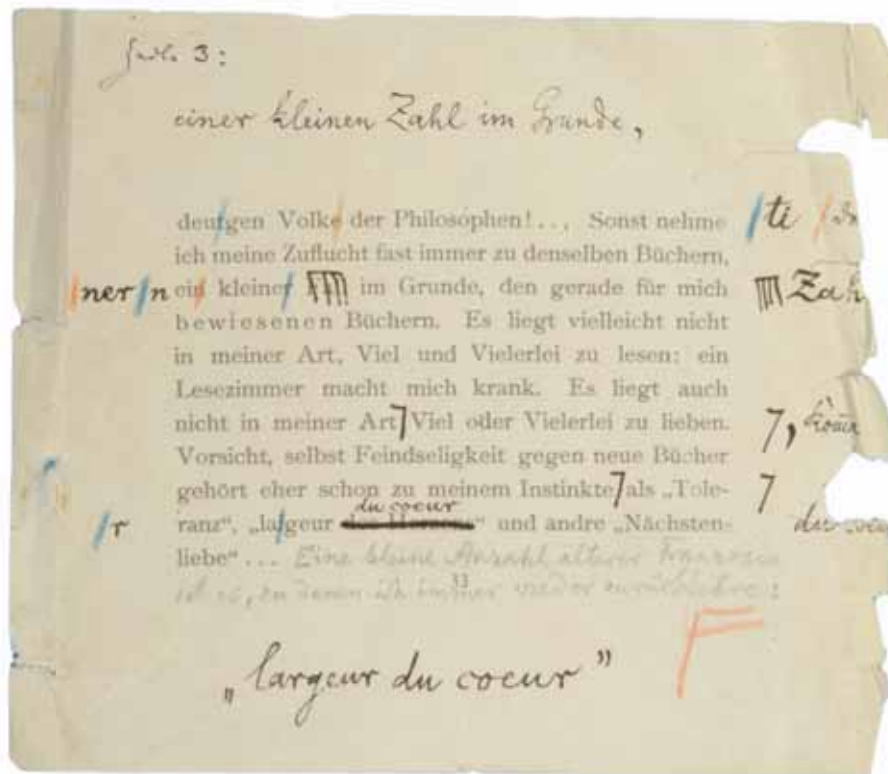 3:
einer kleinen Zahl im Grunde,
deutgen Volke der Philosophen!... Sonst nehme ti
ich meine Zuflucht fast immer zu denselben Büchern,
ner n ein kleiner im Grunde, den gerade für mich Zah
bewiesenen Büchern. Es liegt vielleicht nicht
in meiner Art, Viel und Vielerlei zu lesen: ein
Lesezimmer macht mich krank. Es liegt auch
nicht in meiner Art Viel oder Vielerlei zu lieben. ,
Vorsicht, selbst Feindseligkeit gegen neue Bücher
gehört eher schon zu meinem Instinkte als „Tole-
du coeur
r ranz“, „lageur “ und andre „Nächsten- du coeu
liebe“ ... Eine kleine Anzahl älterer Franzosen
ist es, zu denen ich immer wieder zurückkehre:
33
F
„largeur du coeur”